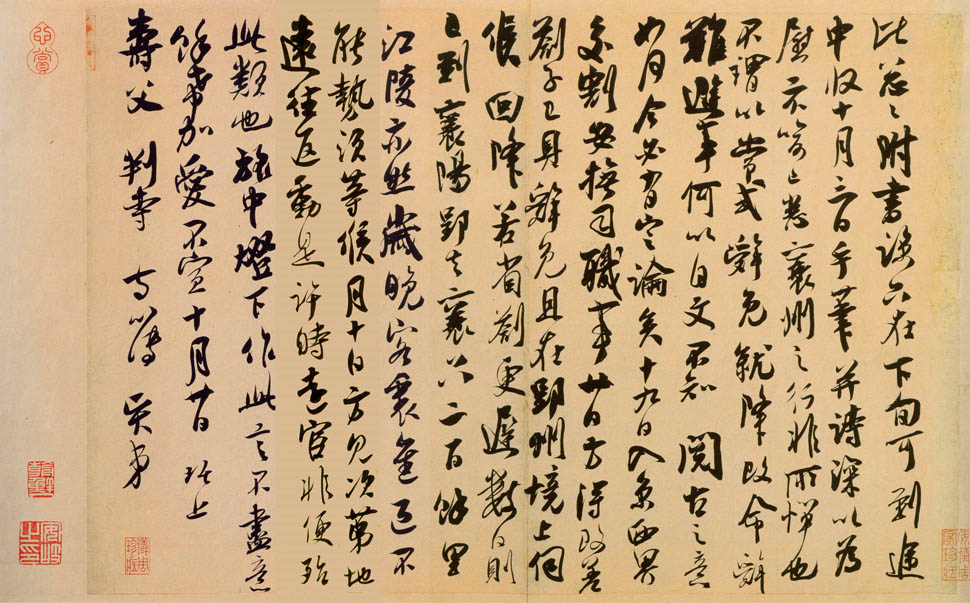 比忩々附書談六在下旬可到逓
中收十月三日手筆并詩深以為
慰示喻襄州之行非所憚也
不謂以嘗試辭免就降改命辭
難進事何以自文不知 閱古之意
如何今必有定論矣十九日入京西界
交割安撫司職事廿日方得改差
劄子已具辭免且在郢州境上伺
候回降若省劄更遲數日則
已到襄陽郢去襄六二百餘里
江陵亦然歲晚客裏進退不
能勢須等候月十日方見次第地
遠往返動是許時遠官非便殆
此類也旅中燈下作此言不盡意
餘希加愛不宣十月廿日 琚上
壽父 判寺